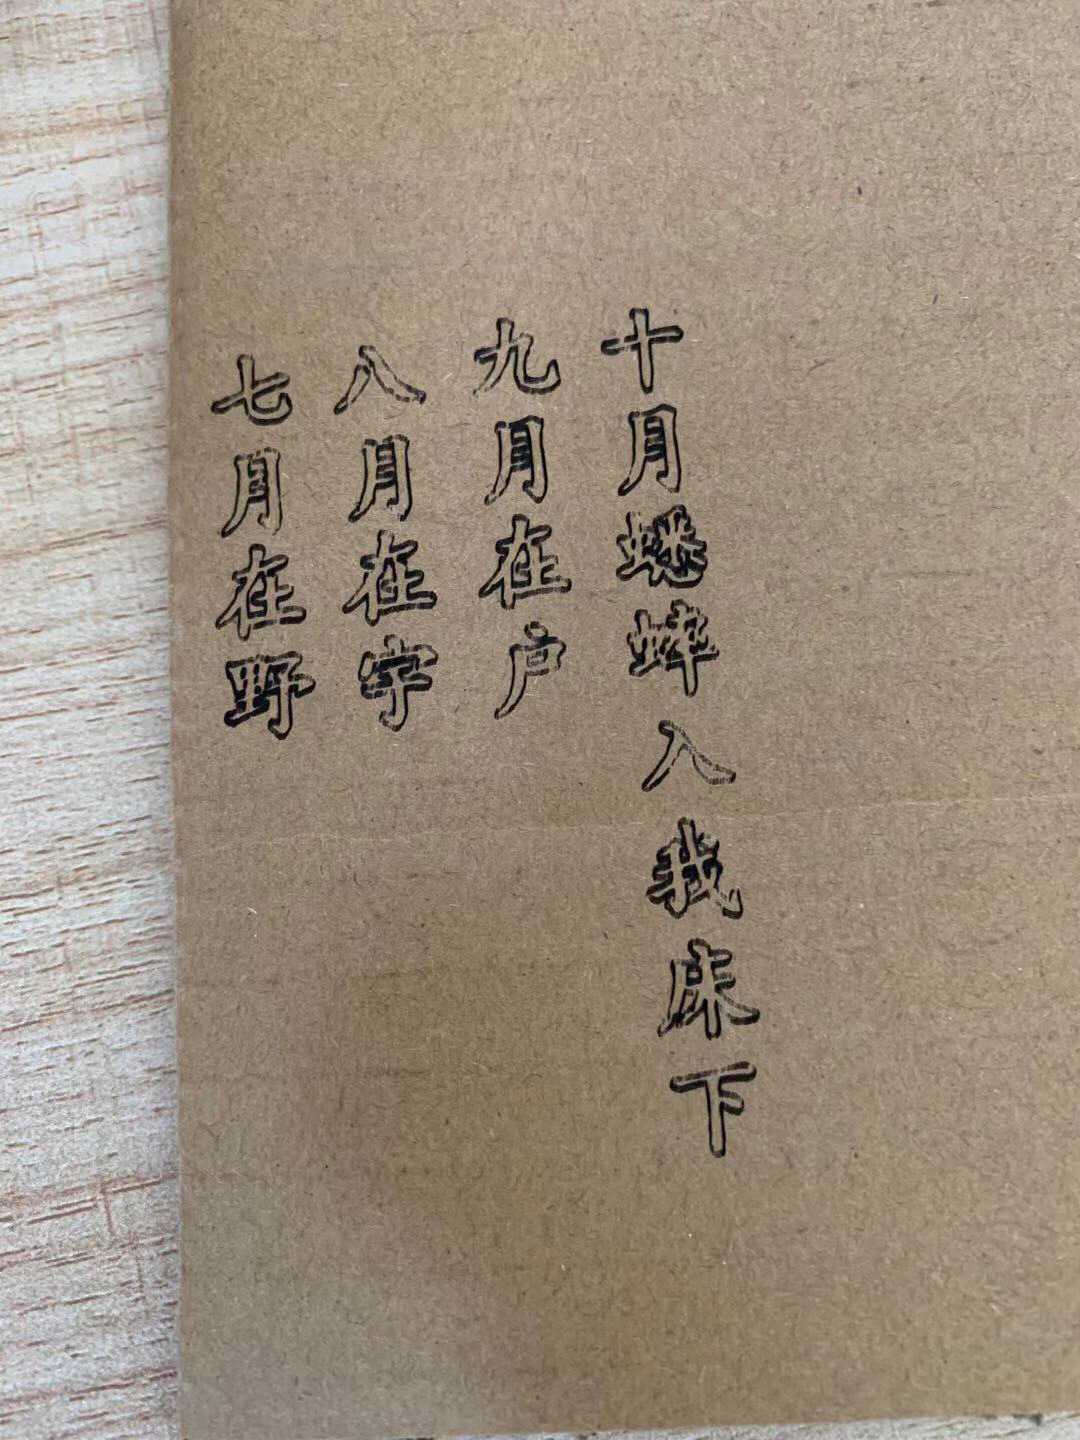 七月在野
八月在宇
九月在户
十月蟋蟀入我床下